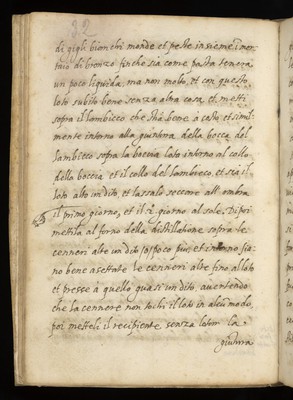 32
di gigli bianchi monde et peste insieme in mor
taio di bronzo finche sia come pasta tenera
un poco liquida, ma non molto, et con questo
loto subito bene senza altra cosa, et metti
sopra il lambicco che stia bene a cesto et simil
mente intorno alla giuntura della bocca del
lambicco sopra la boccia loto intorno al collo
della boccia et il collo del lambicco, et sia il
loto alto un dito, et lassalo seccare all' ombra
il primo giorno, et il 2° giorno al sole. Di poi
mettila al forno della distillatione sopra le
cenneri alte un dito o poco piu, et intorno sia
no bene asettate le cenneri alte fino al loto
et presse a quello quasi un dito, avertendo
che la cennere non tochi il loto in alcun modo,
poi metteli il recipiente senza lotar la
giuntura